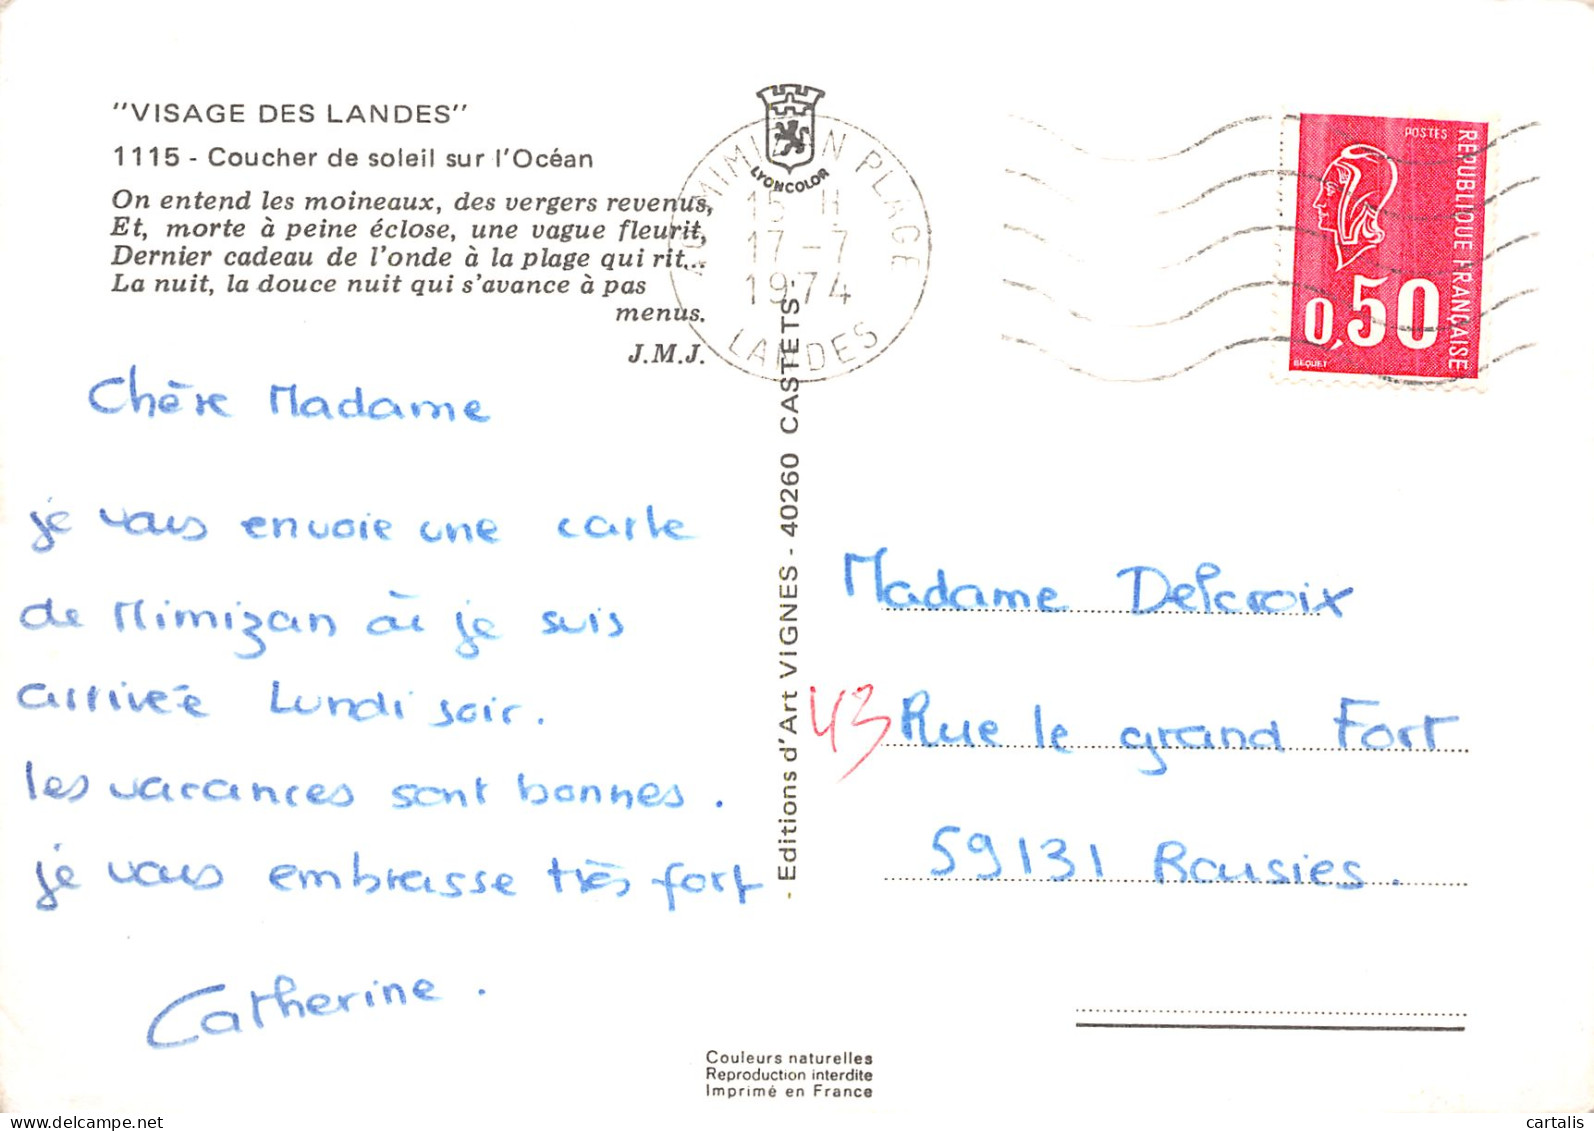 "VISAGE DES LANDES"
1115 - Coucher de soleil sur l'Océan
On entend les moineaux, des vergers revenus,
Et, morte à peine éclose, une vague fleurit,
Dernier cadeau de l'onde à la plage qui rit...
La nuit, la douce nuit qui s'avance à pas
menus.
J.M.J.
Chère Madame
je vous envoie une carte
de Mimizan où je suis
arrivée Lundi soir.
les vacances sont bonnes.
je vous embrasse très fort
Catherine.
LYONCOLOR
MIMIZAN PLAGE
15 H
17-7
1974
LANDES
- Editions d'Art VIGNES - 40260 CASTETS -
POSTES
REPUBLIQUE FRANÇAISE
0,50
BEQUET
Madame Delcroix
43 Rue le grand Fort
59131 Rousies.
Couleurs naturelles
Reproduction interdite
Imprimé en France
cartalis